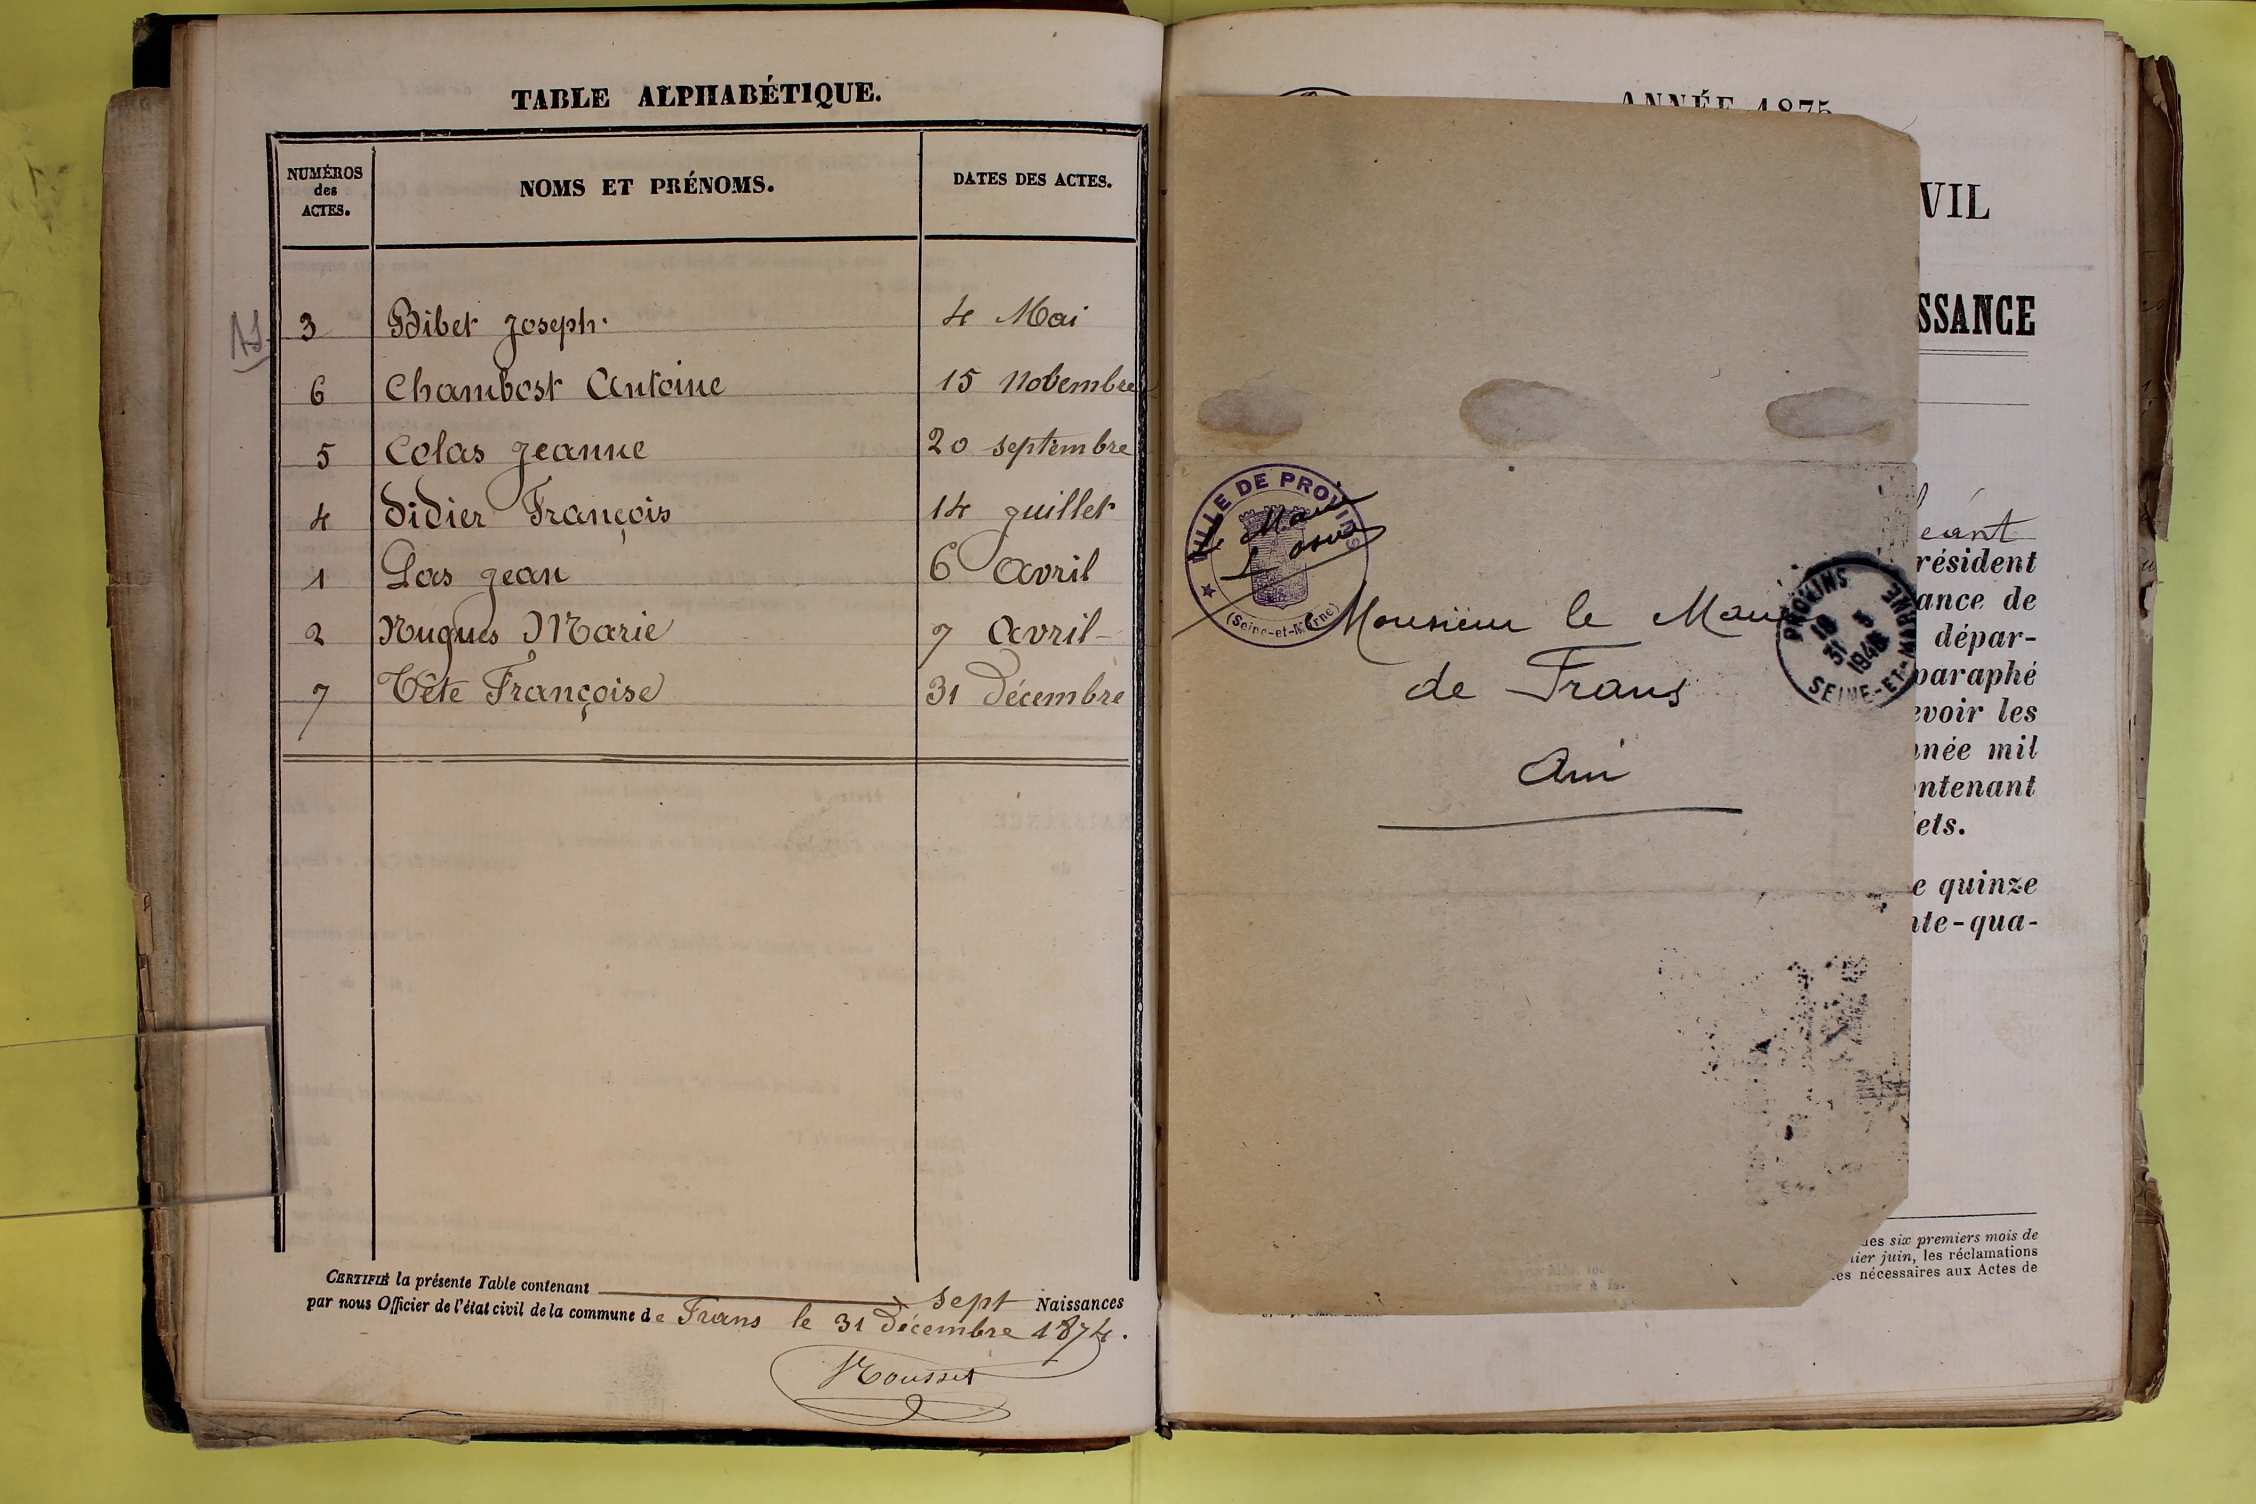 TABLE ALPHABÉTIQUE.
NUMÉROS
des
ACTES.
NOMS ET PRÉNOMS.
DATES DES ACTES.
3 Bibet Joseph. 4 Mai
6 Chambost Antoine 15 Novembre
5 Colas Jeanne 20 septembre
4 Didier François 14 Juillet
1 Las Jean 6 Avril
2 Nugues Marie 7 Avril
7 Tête Françoise 31 décembre
CERTIFIÉ la présente Table contenant sept Naissances
par nous Officier de l'état civil de la commune de Frans le 31 décembre 1874.
Rousset
ANNÉE 1875
VIL
SSANCE
VILLE DE PROVINS
(Seine-et-Marne)
Monsieur le Maire
de Frans
Ain
PROVINS
19 5
31
1946
SEINE-ET-MARNE
éant
résident
ance de
dépar-
paraphé
evoir les
nnée mil
ontenant
lets.
e quinze
nte-qua-
des six premiers mois de
nier juin, les réclamations
es nécessaires aux Actes de